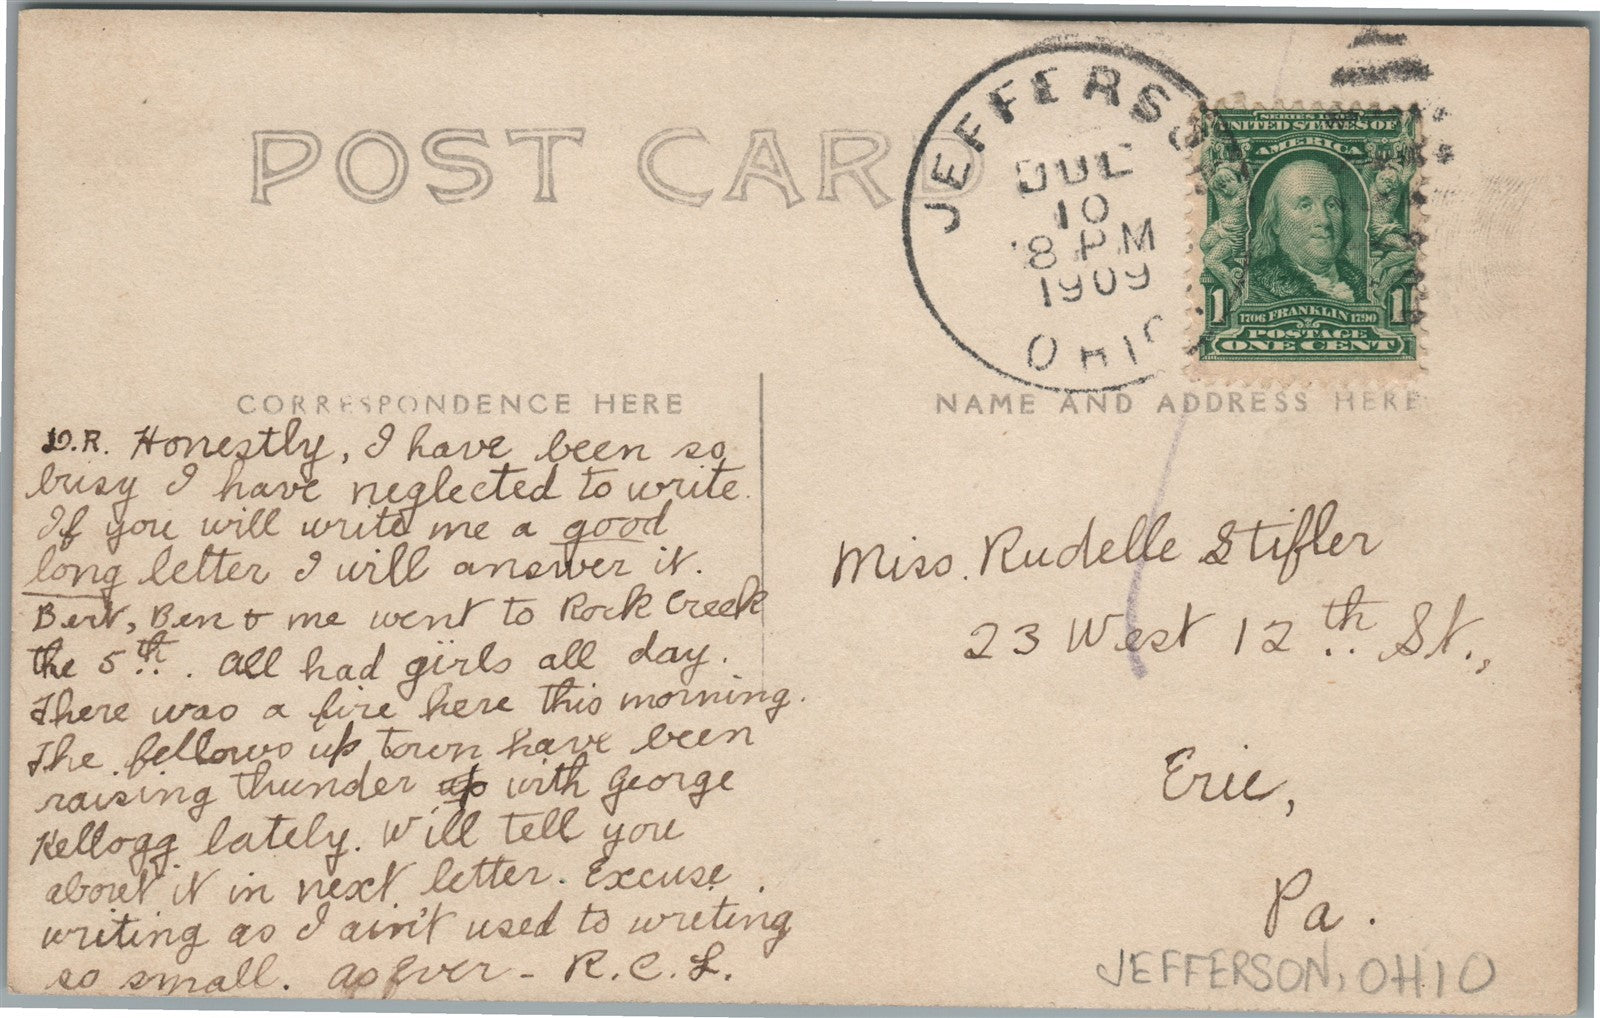 POST CARD
JEFFERSO
JUL
10
8 PM
1909
OHIO
SERIES 1902
UNITED STATES OF
AMERICA
1 1
1706 FRANKLIN 1790
POSTAGE
ONE CENT
CORRESPONDENCE HERE
NAME AND ADDRESS HERE
D.R. Honestly, I have been so
busy I have neglected to write.
If you will write me a good
long letter I will answer it.
Bert, Ben & me went to Rock Creek
the 5th. All had girls all day.
There was a fire here this morning.
The fellows up town have been
raising thunder with George
Kellogg lately. Will tell you
about it in next letter. Excuse
writing as I ain't used to writing
so small. As Ever - R.C.L.
Miss. Rudelle Stifler
23 West 12th St.,
Erie,
Pa.
JEFFERSON, OHIO